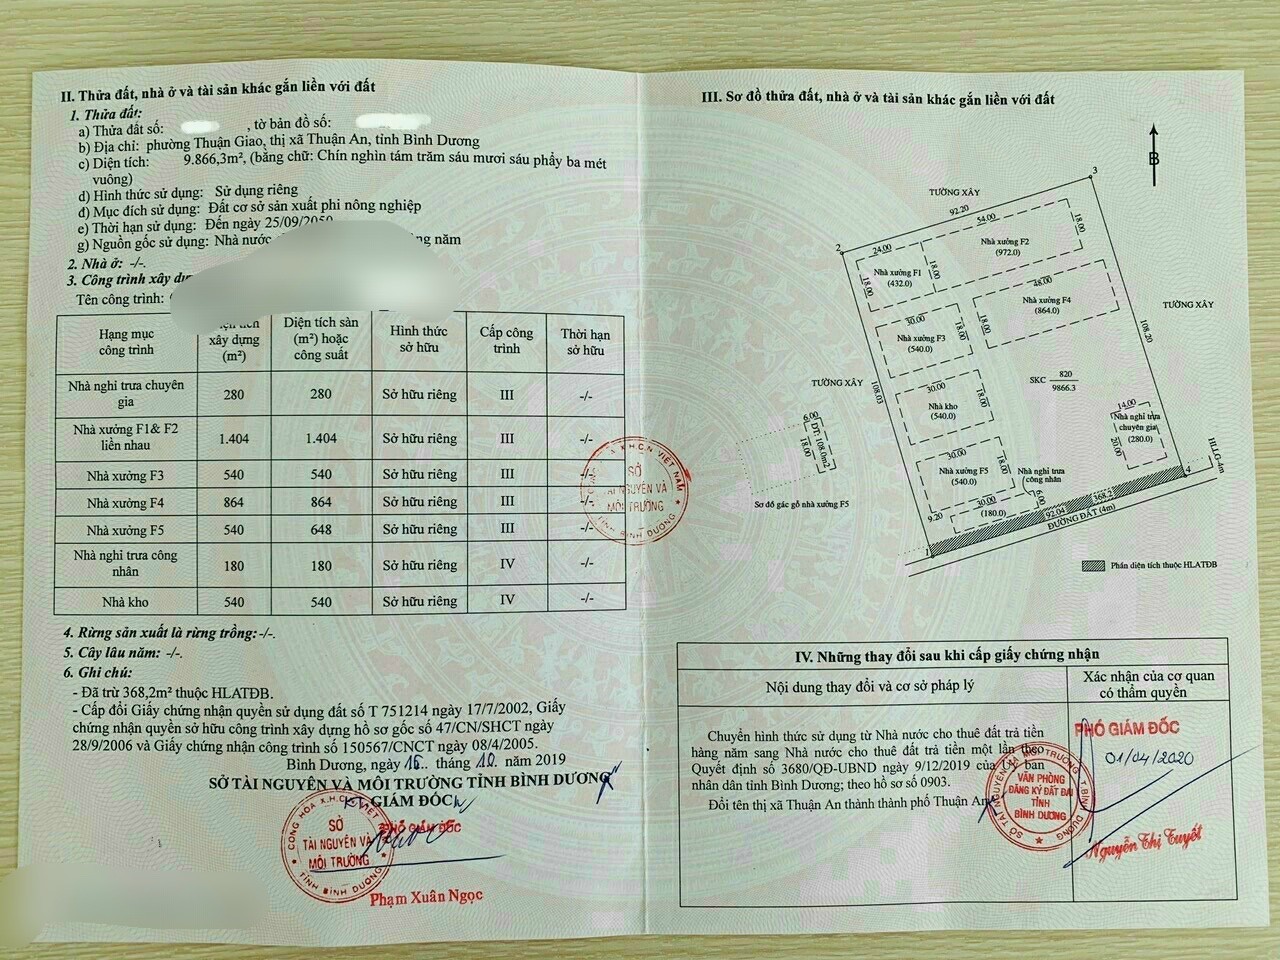 II. Thửa đất, nhà ở và tài sản khác gắn liền với đất
1. Thửa đất:
a) Thửa đất số: , tờ bản đồ số:
b) Địa chỉ: phường Thuận Giao, thị xã Thuận An, tỉnh Bình Dương
c) Diện tích: 9.866,3m², (bằng chữ: Chín nghìn tám trăm sáu mươi sáu phẩy ba mét
vuông)
d) Hình thức sử dụng: Sử dụng riêng
đ) Mục đích sử dụng: Đất cơ sở sản xuất phi nông nghiệp
e) Thời hạn sử dụng: Đến ngày 25/09/2050
g) Nguồn gốc sử dụng: Nhà nước năm
2. Nhà ở: -/-.
3. Công trình xây dựng
Tên công trình:
Hạng mục công trình | xây dựng (m²) | Diện tích sàn (m²) hoặc công suất | Hình thức sở hữu | Cấp công trình | Thời hạn sở hữu
Nhà nghỉ trưa chuyên gia | 280 | 280 | Sở hữu riêng | III | -/-
Nhà xưởng F1& F2 liền nhau | 1.404 | 1.404 | Sở hữu riêng | III | -/-
Nhà xưởng F3 | 540 | 540 | Sở hữu riêng | III | -/-
Nhà xưởng F4 | 864 | 864 | Sở hữu riêng | III | -/-
Nhà xưởng F5 | 540 | 648 | Sở hữu riêng | III | -/-
Nhà nghỉ trưa công nhân | 180 | 180 | Sở hữu riêng | IV | -/-
Nhà kho | 540 | 540 | Sở hữu riêng | IV | -/-
4. Rừng sản xuất là rừng trồng: -/-.
5. Cây lâu năm: -/-.
6. Ghi chú:
- Đã trừ 368,2m² thuộc HLATĐB.
- Cấp đổi Giấy chứng nhận quyền sử dụng đất số T 751214 ngày 17/7/2002, Giấy
chứng nhận quyền sở hữu công trình xây dựng hồ sơ gốc số 47/CN/SHCT ngày
28/9/2006 và Giấy chứng nhận công trình số 150567/CNCT ngày 08/4/2005.
Bình Dương, ngày 16. tháng 10. năm 2019
SỞ TÀI NGUYÊN VÀ MÔI TRƯỜNG TỈNH BÌNH DƯƠNG
KT. GIÁM ĐỐC
PHÓ GIÁM ĐỐC
CỘNG HÒA X.H.C.N VIỆT
SỞ
TÀI NGUYÊN VÀ
MÔI TRƯỜNG
TỈNH BÌNH DƯƠNG
Phạm Xuân Ngọc
X.H.C.N VIỆT NAM
SỞ
TÀI NGUYÊN VÀ
MÔI TRƯỜNG
TỈNH BÌNH DƯƠNG
III. Sơ đồ thửa đất, nhà ở và tài sản khác gắn liền với đất
B
3
TƯỜNG XÂY
92.20
54.00
18.00
2
24.00
Nhà xưởng F2
(972.0)
18.00
Nhà xưởng F1
(432.0)
18.00
48.00
Nhà xưởng F4
(864.0)
18.00
TƯỜNG XÂY
30.00
18.00
Nhà xưởng F3
(540.0)
108.20
TƯỜNG XÂY
108.03
SKC 820
9866.3
30.00
18.00
Nhà kho
(540.0)
14.00
Nhà nghỉ trưa
chuyên gia
(280.0)
20.00
6.00
18.00
DT: 108.0m2
Sơ đồ gác gỗ nhà xưởng F5
30.00
18.00
Nhà xưởng F5
(540.0)
Nhà nghỉ trưa
công nhân
6.00
30.00
(180.0)
9.20
HLLG-4m
4
368.2
92.04
ĐƯỜNG ĐẤT (4m)
1
Phần diện tích thuộc HLATĐB
IV. Những thay đổi sau khi cấp giấy chứng nhận
Nội dung thay đổi và cơ sở pháp lý | Xác nhận của cơ quan có thẩm quyền
Chuyển hình thức sử dụng từ Nhà nước cho thuê đất trả tiền
hàng năm sang Nhà nước cho thuê đất trả tiền một lần theo
Quyết định số 3680/QĐ-UBND ngày 9/12/2019 của Ủy ban
nhân dân tỉnh Bình Dương; theo hồ sơ số 0903.
Đổi tên thị xã Thuận An thành thành phố Thuận An
PHÓ GIÁM ĐỐC
01/04/2020
SỞ TÀI NGUYÊN VÀ MÔI TRƯỜNG T.BÌNH DƯƠNG
VĂN PHÒNG
ĐĂNG KÝ ĐẤT ĐAI
TỈNH
BÌNH DƯƠNG
Nguyễn Thị Tuyết